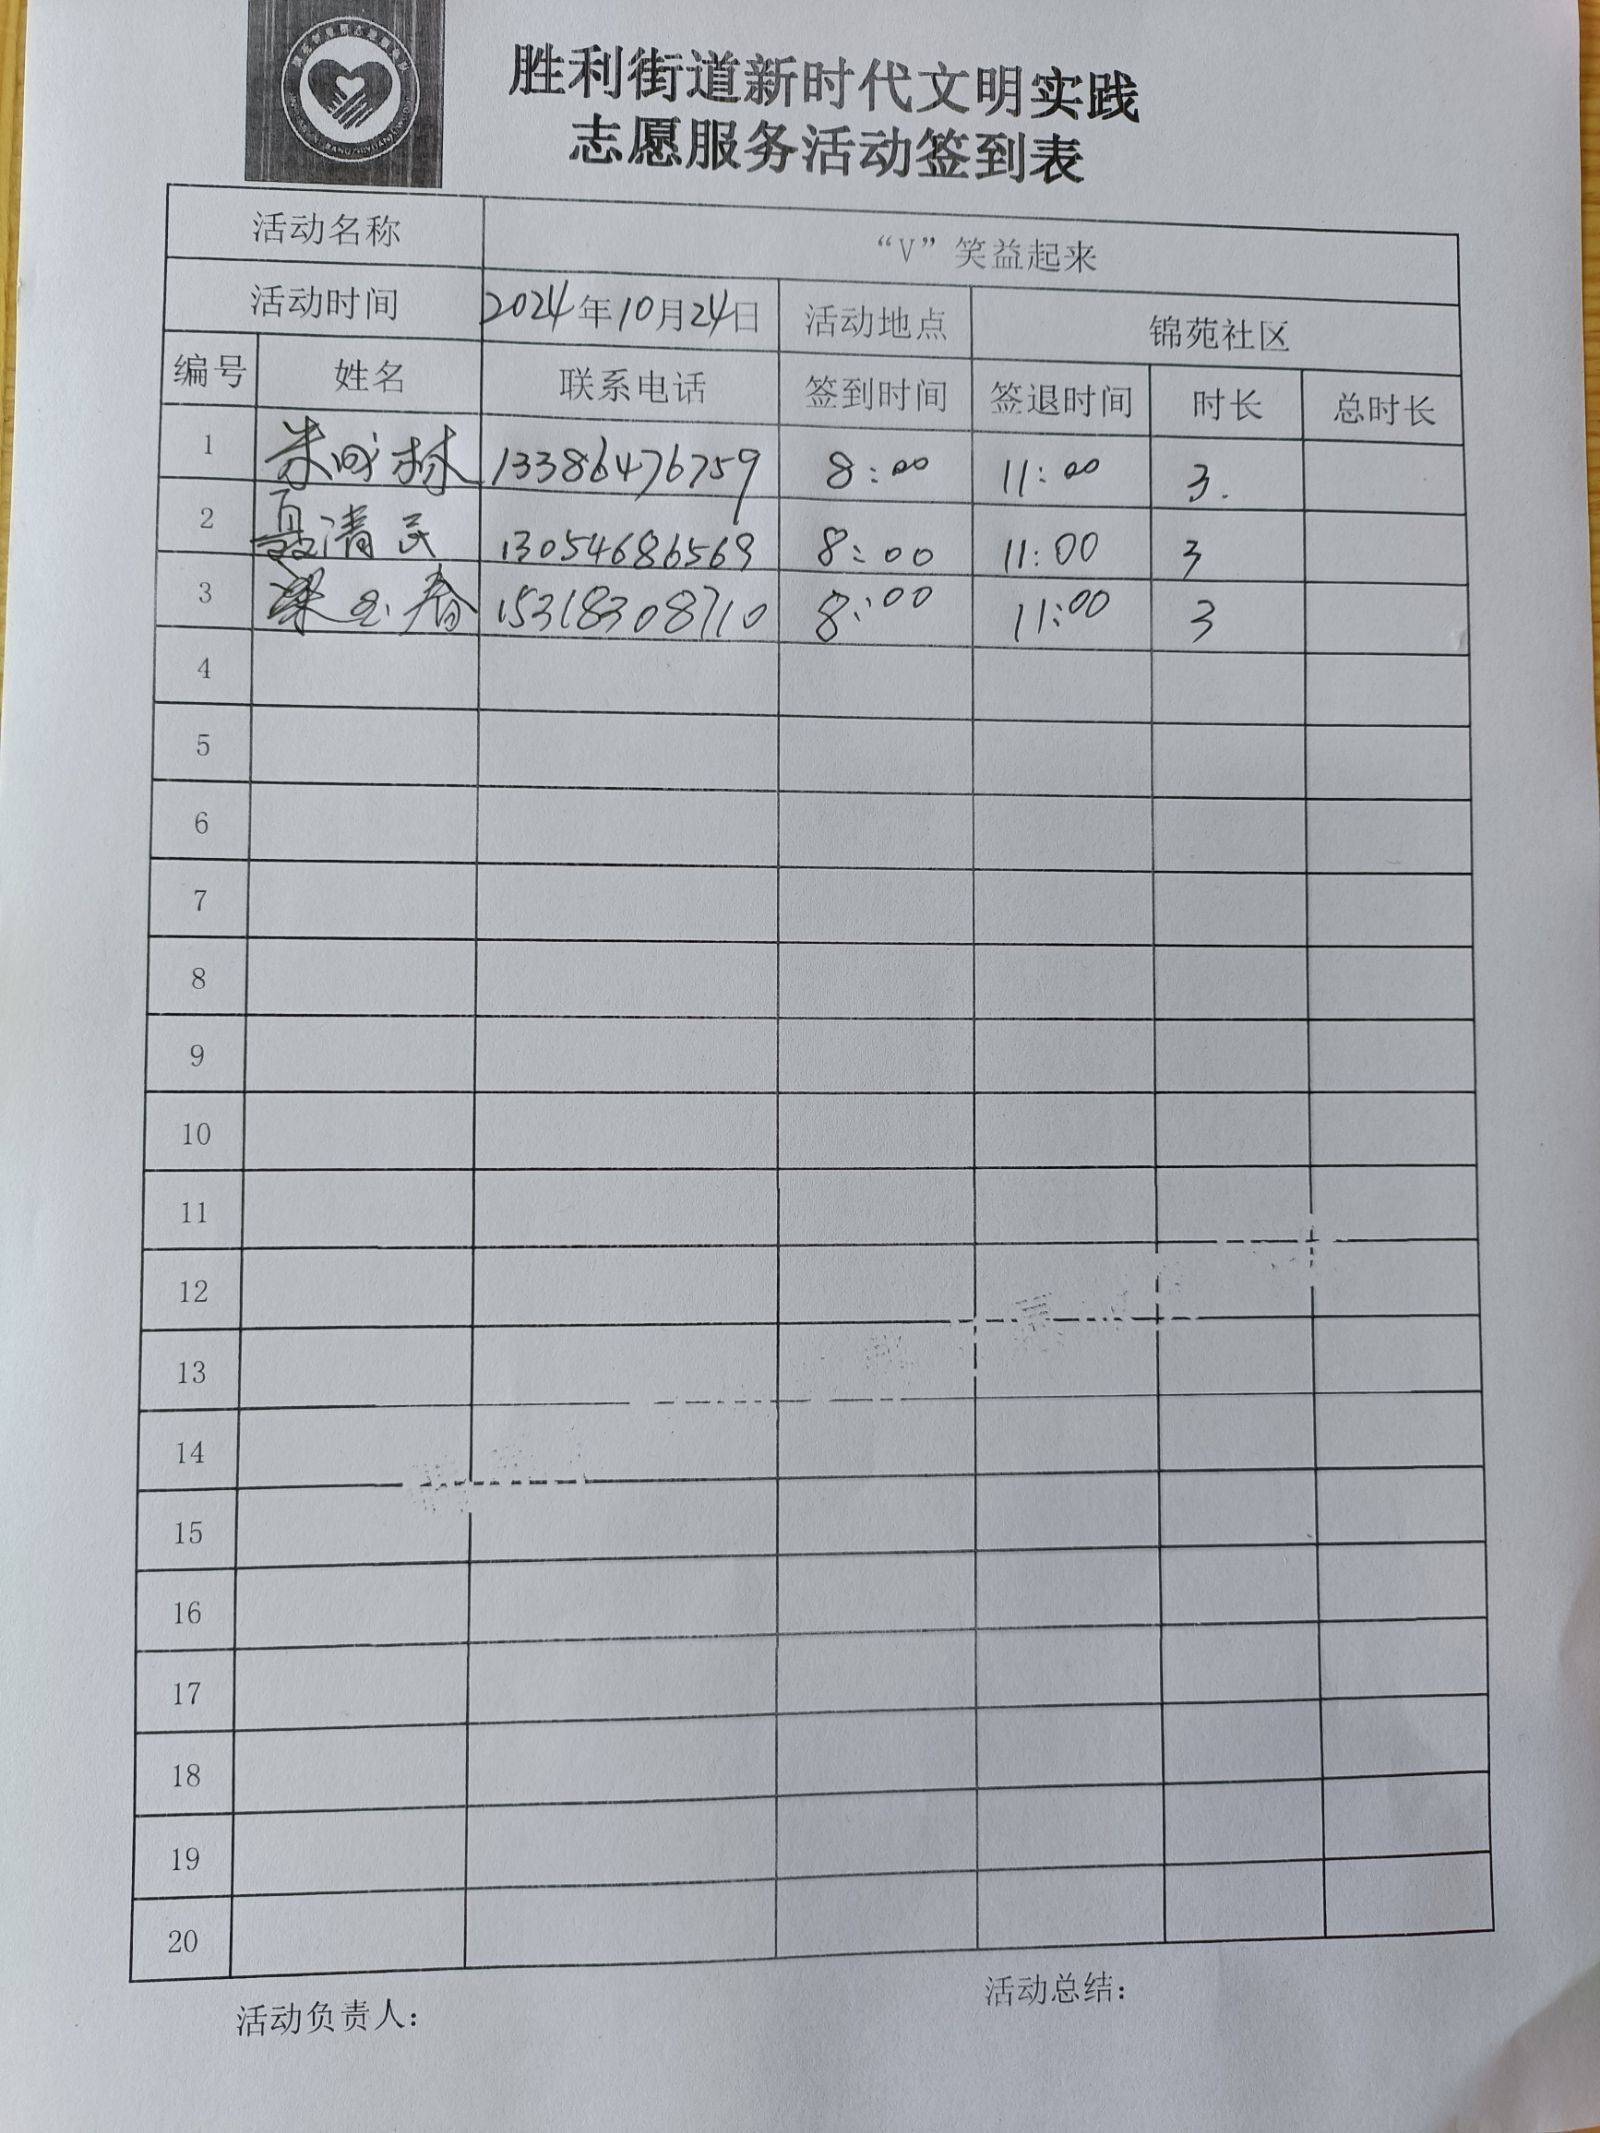 胜利街道新时代文明实践
志愿服务活动签到表
活动名称 “V”笑益起来
活动时间 2024年10月24日 活动地点 锦苑社区
编号 姓名 联系电话 签到时间 签退时间 时长 总时长
1 朱成林 13386476759 8:00 11:00 3.
2 聂清民 13054686569 8:00 11:00 3
3 梁玉春 15318308710 8:00 11:00 3
4
5
6
7
8
9
10
11
12
13
14
15
16
17
18
19
20
活动负责人： 活动总结：